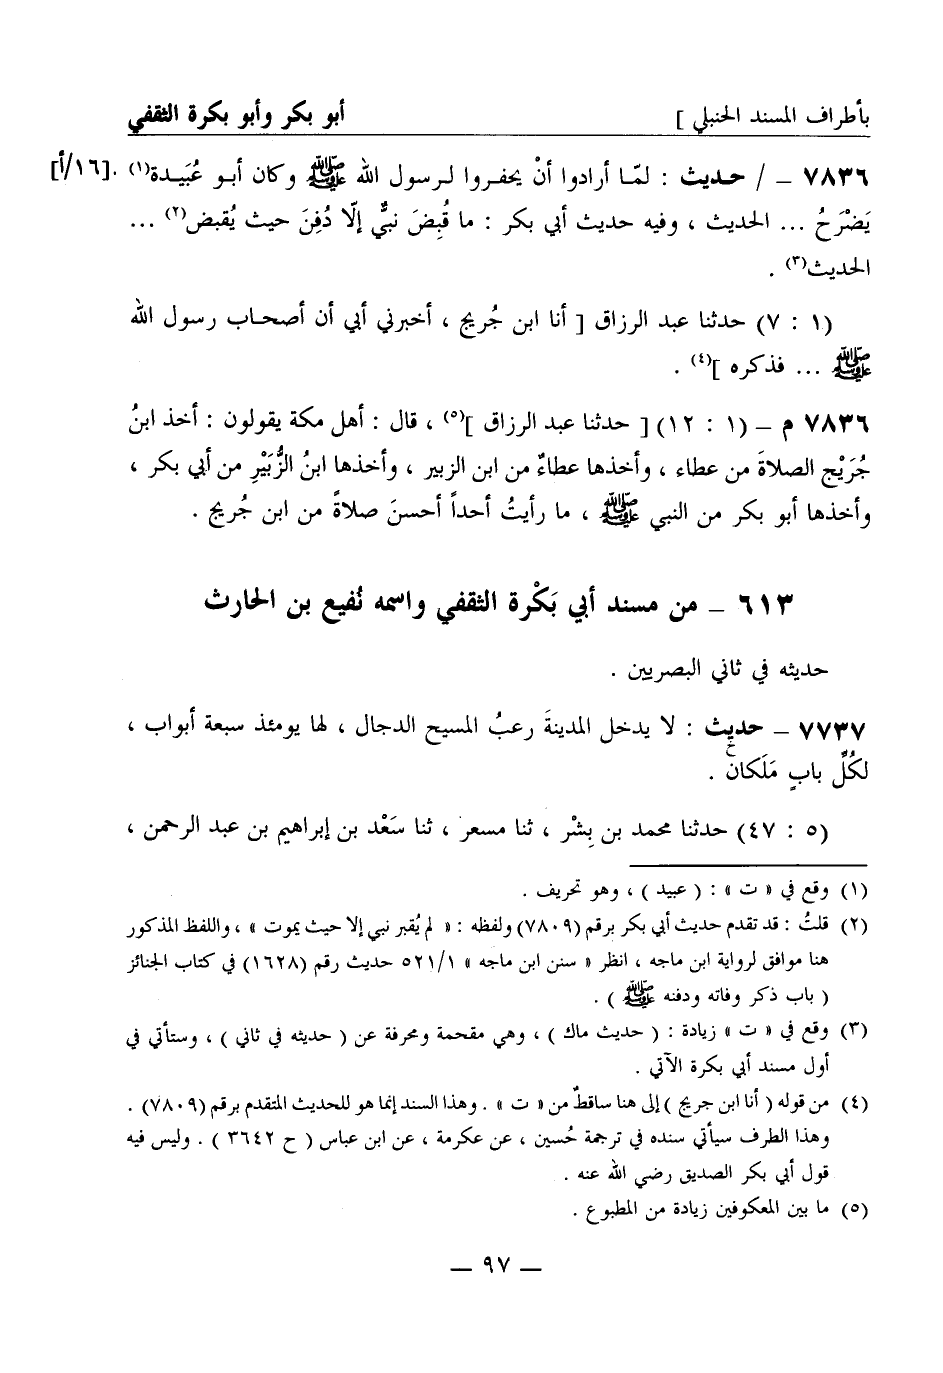 بأطراف المسند الحنبلي ] أبو بكر وأبو بكرة الثقفي
٧٨٣٦ ــ / حـديث : لمّـا أرادوا أنْ يحفـروا لـرسول الله ﷺ وكان أبـو عُبَيـدة(١) .[١٦/أ]
يَضْرَحُ ... الحديث ، وفيه حديث أبي بكر : ما قُبِضَ نبيٌّ إلّا دُفِنَ حيث يُقبض(٢) ...
الحديث(٣) .
(١ : ٧) حدثنا عبد الرزاق [ أنا ابن جُريج ، أخبرني أبي أن أصحـاب رسول الله
ﷺ ... فذكره ](٤) .
٧٨٣٦ م ــ (١ : ١٢) [ حدثنا عبد الرزاق ](٥) ، قال : أهل مكة يقولون : أخذ ابنُ
جُرَيْج الصلاةَ من عطاء ، وأخذها عطاءٌ من ابن الزبير ، وأخذها ابنُ الزُّبَيْرِ من أبي بكر ،
وأخذها أبو بكر من النبي ﷺ ، ما رأيتُ أحداً أحسنَ صلاةً من ابن جُريج .
٦١٣ ــ من مسند أبي بَكْرة الثقفي واسمه نُفيع بن الحارث
حديثه في ثاني البصريين .
٧٧٣٧ ــ حديث : لا يدخل المدينةَ رعبُ المسيح الدجال ، لها يومئذ سبعة أبواب ،
لكُلِّ بابٍ مَلَكان .
(٥ : ٤٧) حدثنا محمد بن بِشْر ، ثنا مسعر ، ثنا سَعْد بن إبراهيم بن عبد الرحمن ،
(١) وقع في « ت » : ( عبيد ) ، وهو تحريف .
(٢) قلتُ : قد تقدم حديث أبي بكر برقم (٧٨٠٩) ولفظه : « لم يُقبر نبي إلا حيث يموت » ، واللفظ المذكور
هنا موافق لرواية ابن ماجه ، انظر « سنن ابن ماجه » ٥٢١/١ حديث رقم (١٦٢٨) في كتاب الجنائز
( باب ذكر وفاته ودفنه ﷺ ) .
(٣) وقع في « ت » زيادة : ( حديث ماك ) ، وهي مقحمة ومحرفة عن ( حديثه في ثاني ) ، وستأتي في
أول مسند أبي بكرة الآتي .
(٤) من قوله ( أنا ابن جريج ) إلى هنا ساقطٌ من « ت » . وهذا السند إنما هو للحديث المتقدم برقم (٧٨٠٩) .
وهذا الطرف سيأتي سنده في ترجمة حُسين ، عن عكرمة ، عن ابن عباس ( ح ٣٦٤٢ ) . وليس فيه
قول أبي بكر الصديق رضي الله عنه .
(٥) ما بين المعكوفين زيادة من المطبوع .
ــ ٩٧ ــ